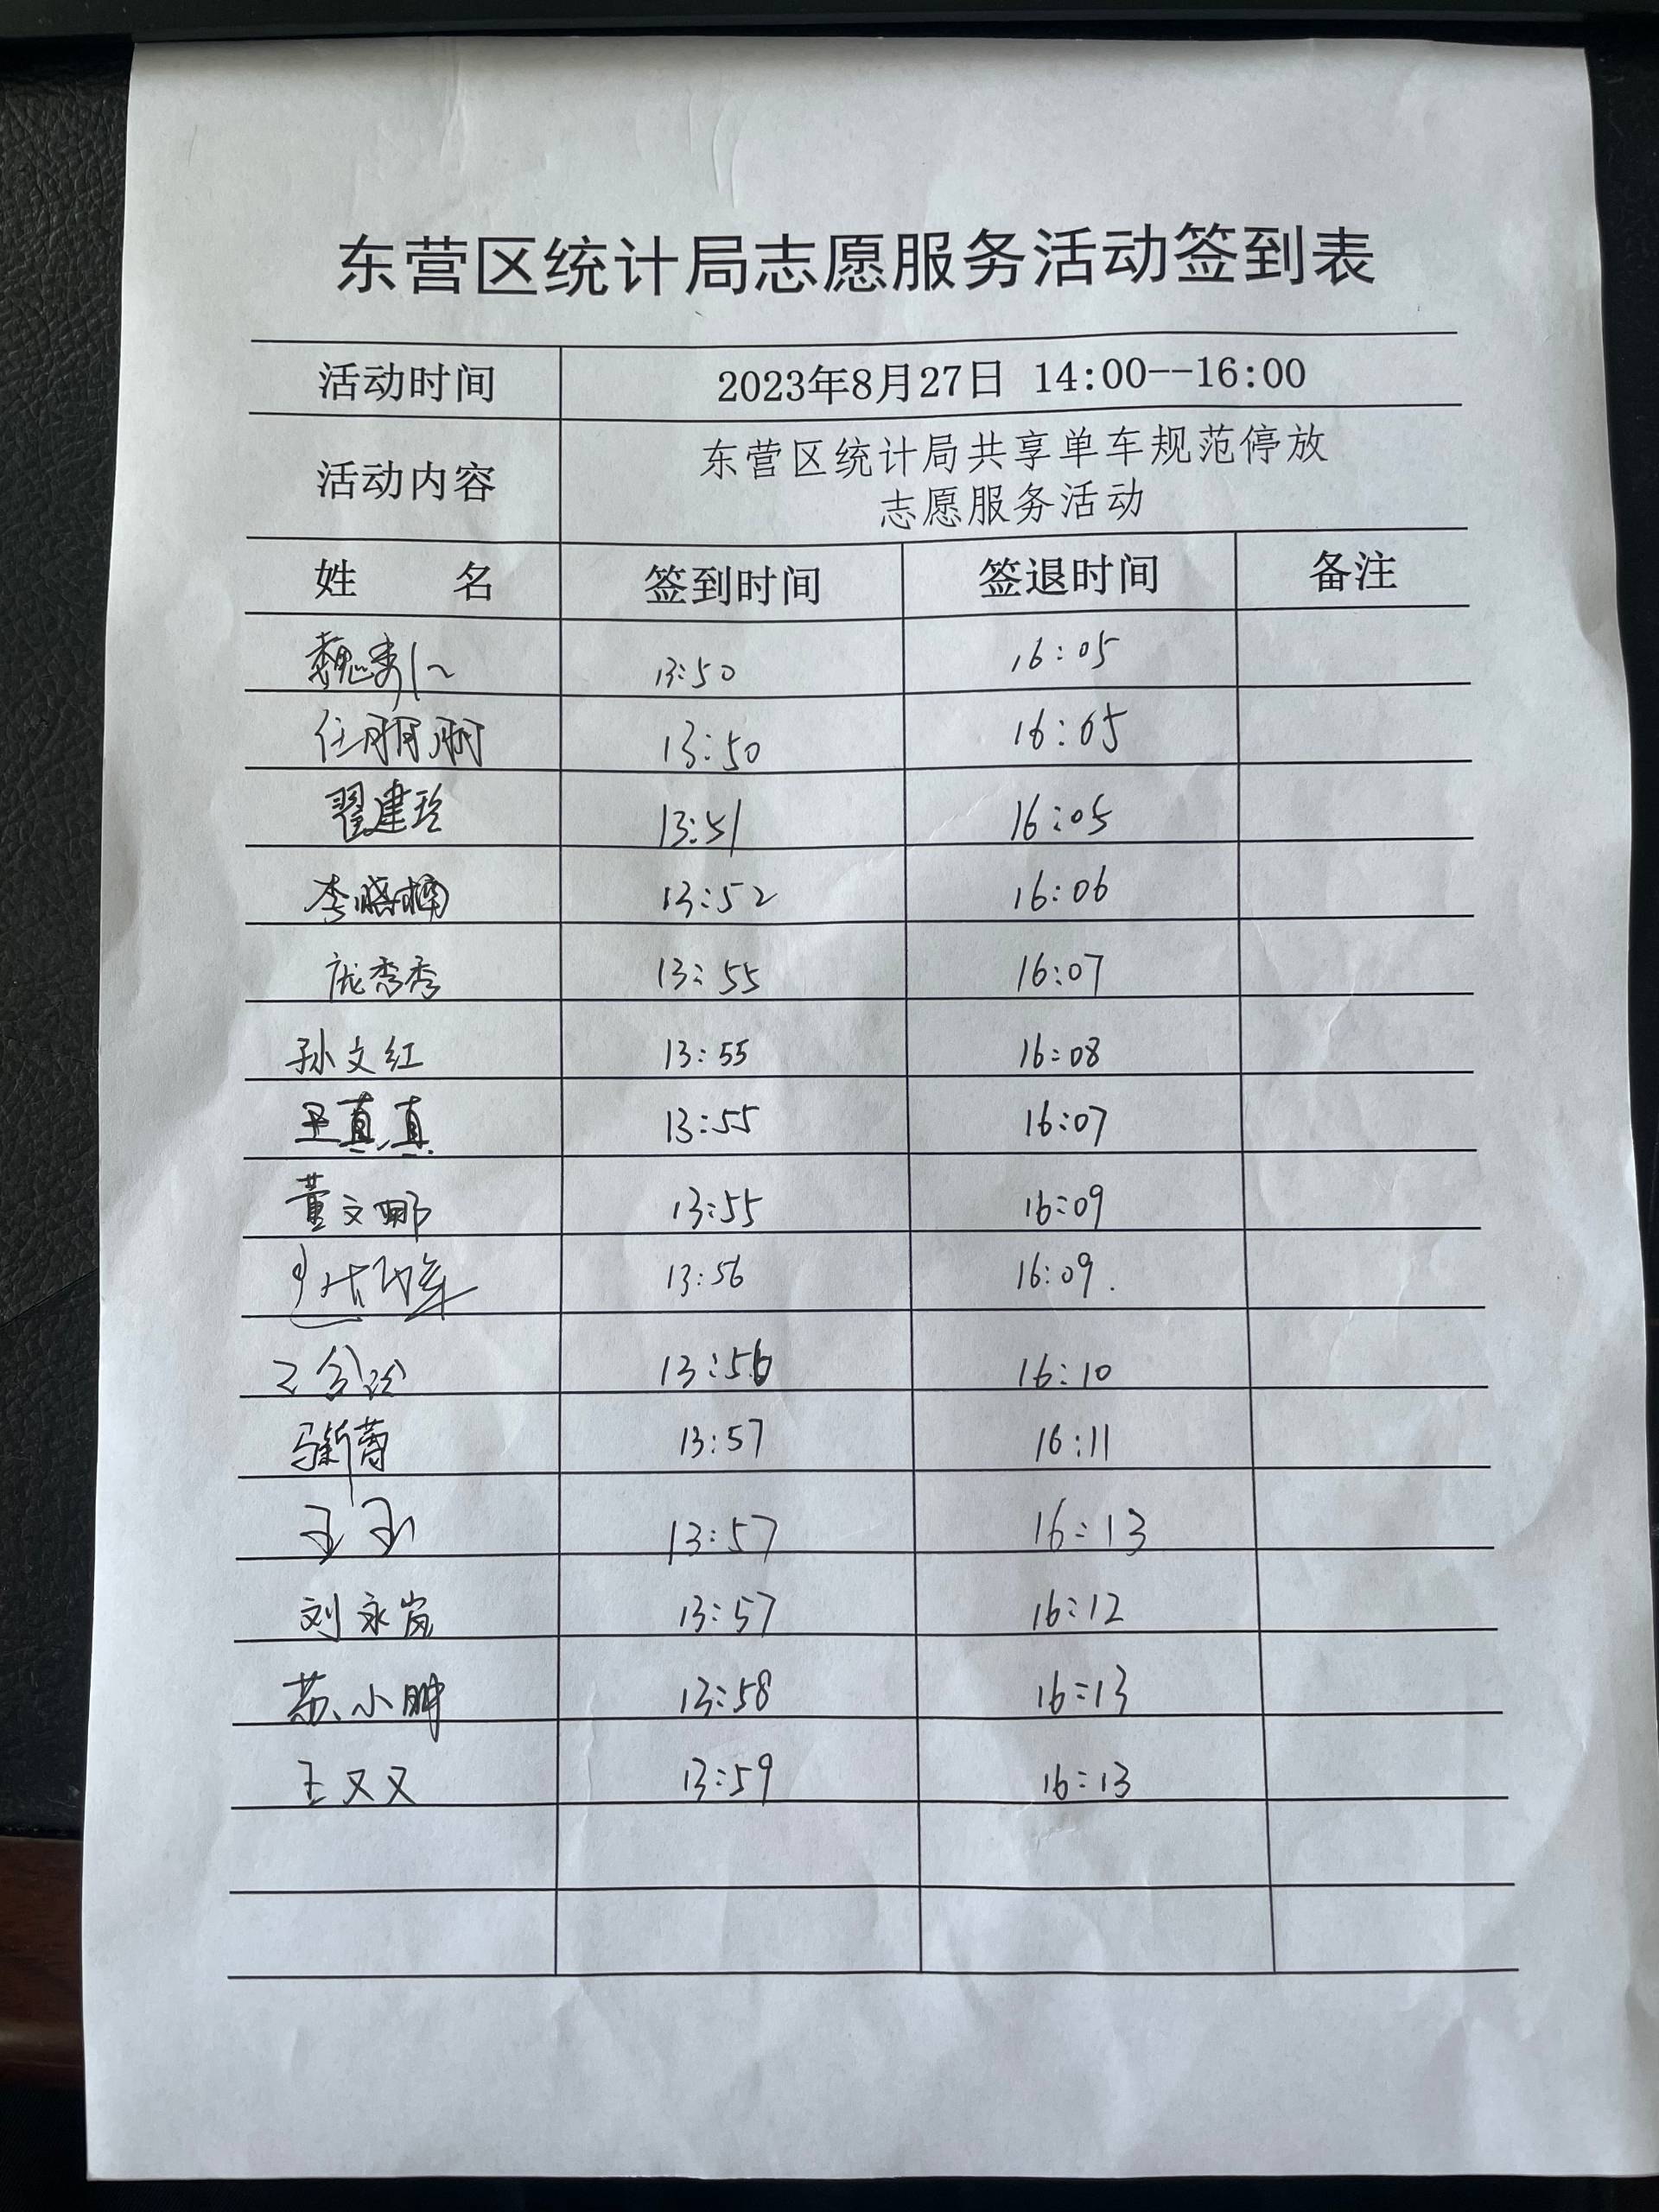 东营区统计局志愿服务活动签到表
活动时间 2023年8月27日 14:00--16:00
活动内容 东营区统计局共享单车规范停放
志愿服务活动
姓 名 签到时间 签退时间 备注
13:50 16:05
任丽丽 13:50 16:05
翟建玲 13:51 16:05
李晓楠 13:52 16:06
庞秀秀 13:55 16:07
孙文红 13:55 16:08
王真真 13:55 16:07
董文娜 13:55 16:09
13:56 16:09.
13:56 16:10
马新蕾 13:57 16:11
王玉 13:57 16:13
刘永岚 13:57 16:12
苏小胖 13:58 16:13
王又又 13:59 16:13